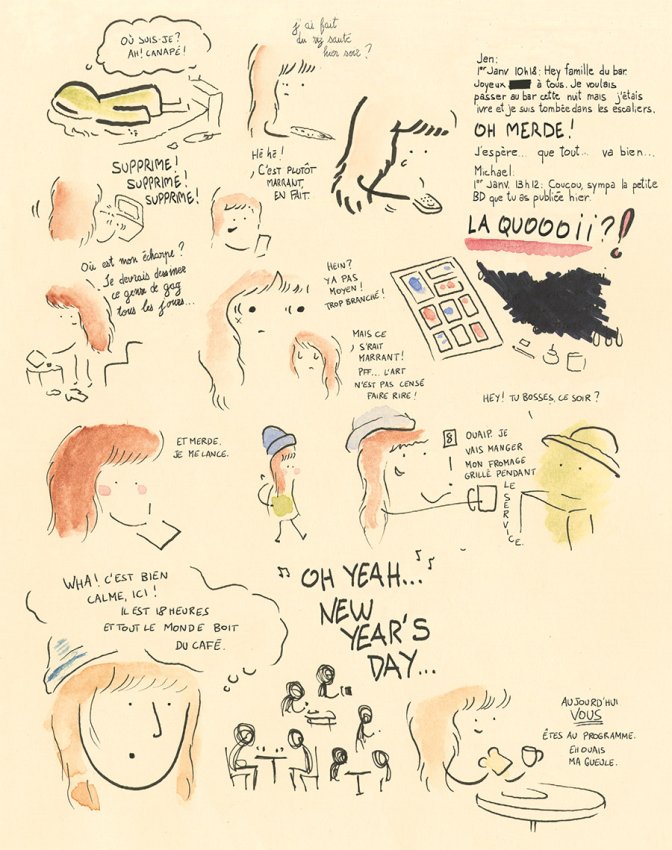 OÙ SUIS-JE?
AH! CANAPÉ!
j'ai fait
du
hier soir?
Jen:
1er Janv 10h18: Hey famille du bar.
Joyeux à tous. Je voulais
passer au bar cette nuit mais j'étais
ivre et je suis tombée dans les escaliers.
OH MERDE!
J'espère... que tout... va bien...
Michael:
1er Janv. 13h12: Coucou, sympa la petite
BD que tu as publiée hier.
LA QUOOOii?!
SUPPRIME!
SUPPRIME!
SUPPRIME!
Hé hé!
C'EST PLUTÔT
MARRANT,
EN FAIT.
Où est mon écharpe?
Je devrais dessiner
ce genre de gag
tous les jours...
HEIN?
Y A PAS
MOYEN!
TROP BRANCHÉ!
MAIS CE
S'RAIT
MARRANT!
PFF... L'ART
N'EST PAS CENSÉ
FAIRE RIRE!
ET MERDE.
JE ME LANCE.
8
OUAIP. JE
VAIS MANGER
MON FROMAGE
GRILLÉ PENDANT
LE SERVICE.
HEY! TU BOSSES, CE SOIR?
WHA! C'EST BIEN
CALME, ICI!
IL EST 18 HEURES
ET TOUT LE MONDE BOIT
DU CAFÉ.
♫ OH YEAH... ♪♫
NEW
YEAR'S
DAY...
AUJOURD'HUI
VOUS
ÊTES AU PROGRAMME.
EH OUAIS
MA GUEULE.